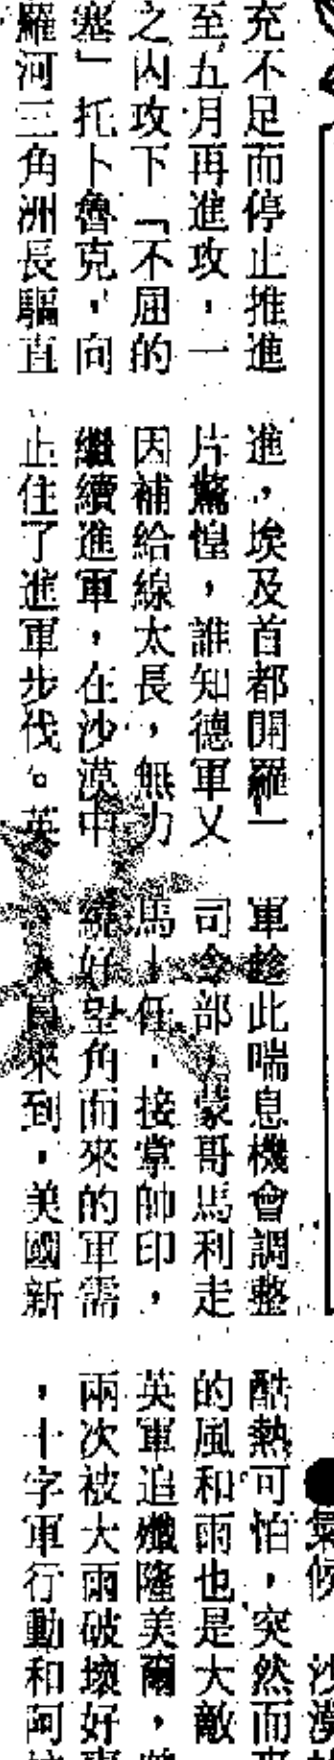 充不足而停止推進
至五月再進攻，一
之內攻下「不屈的
塞」托卜魯克，向
羅河三角洲長驅直
進，埃及首都開羅一
片驚惶，誰知德軍又
因補給線太長，無力
繼續進軍，在沙漠中
止住了進軍步伐。英
軍趁此喘息機會調整
司令部，蒙哥馬利走
馬上任，接掌帥印，
繞好望角而來的軍需
人員來到，美國新
●氣候 沙漠
酷熱可怕，突然而來
的風和雨也是大敵
英軍追殲隆美爾，
兩次被大雨破壞好事
，十字軍行動和阿